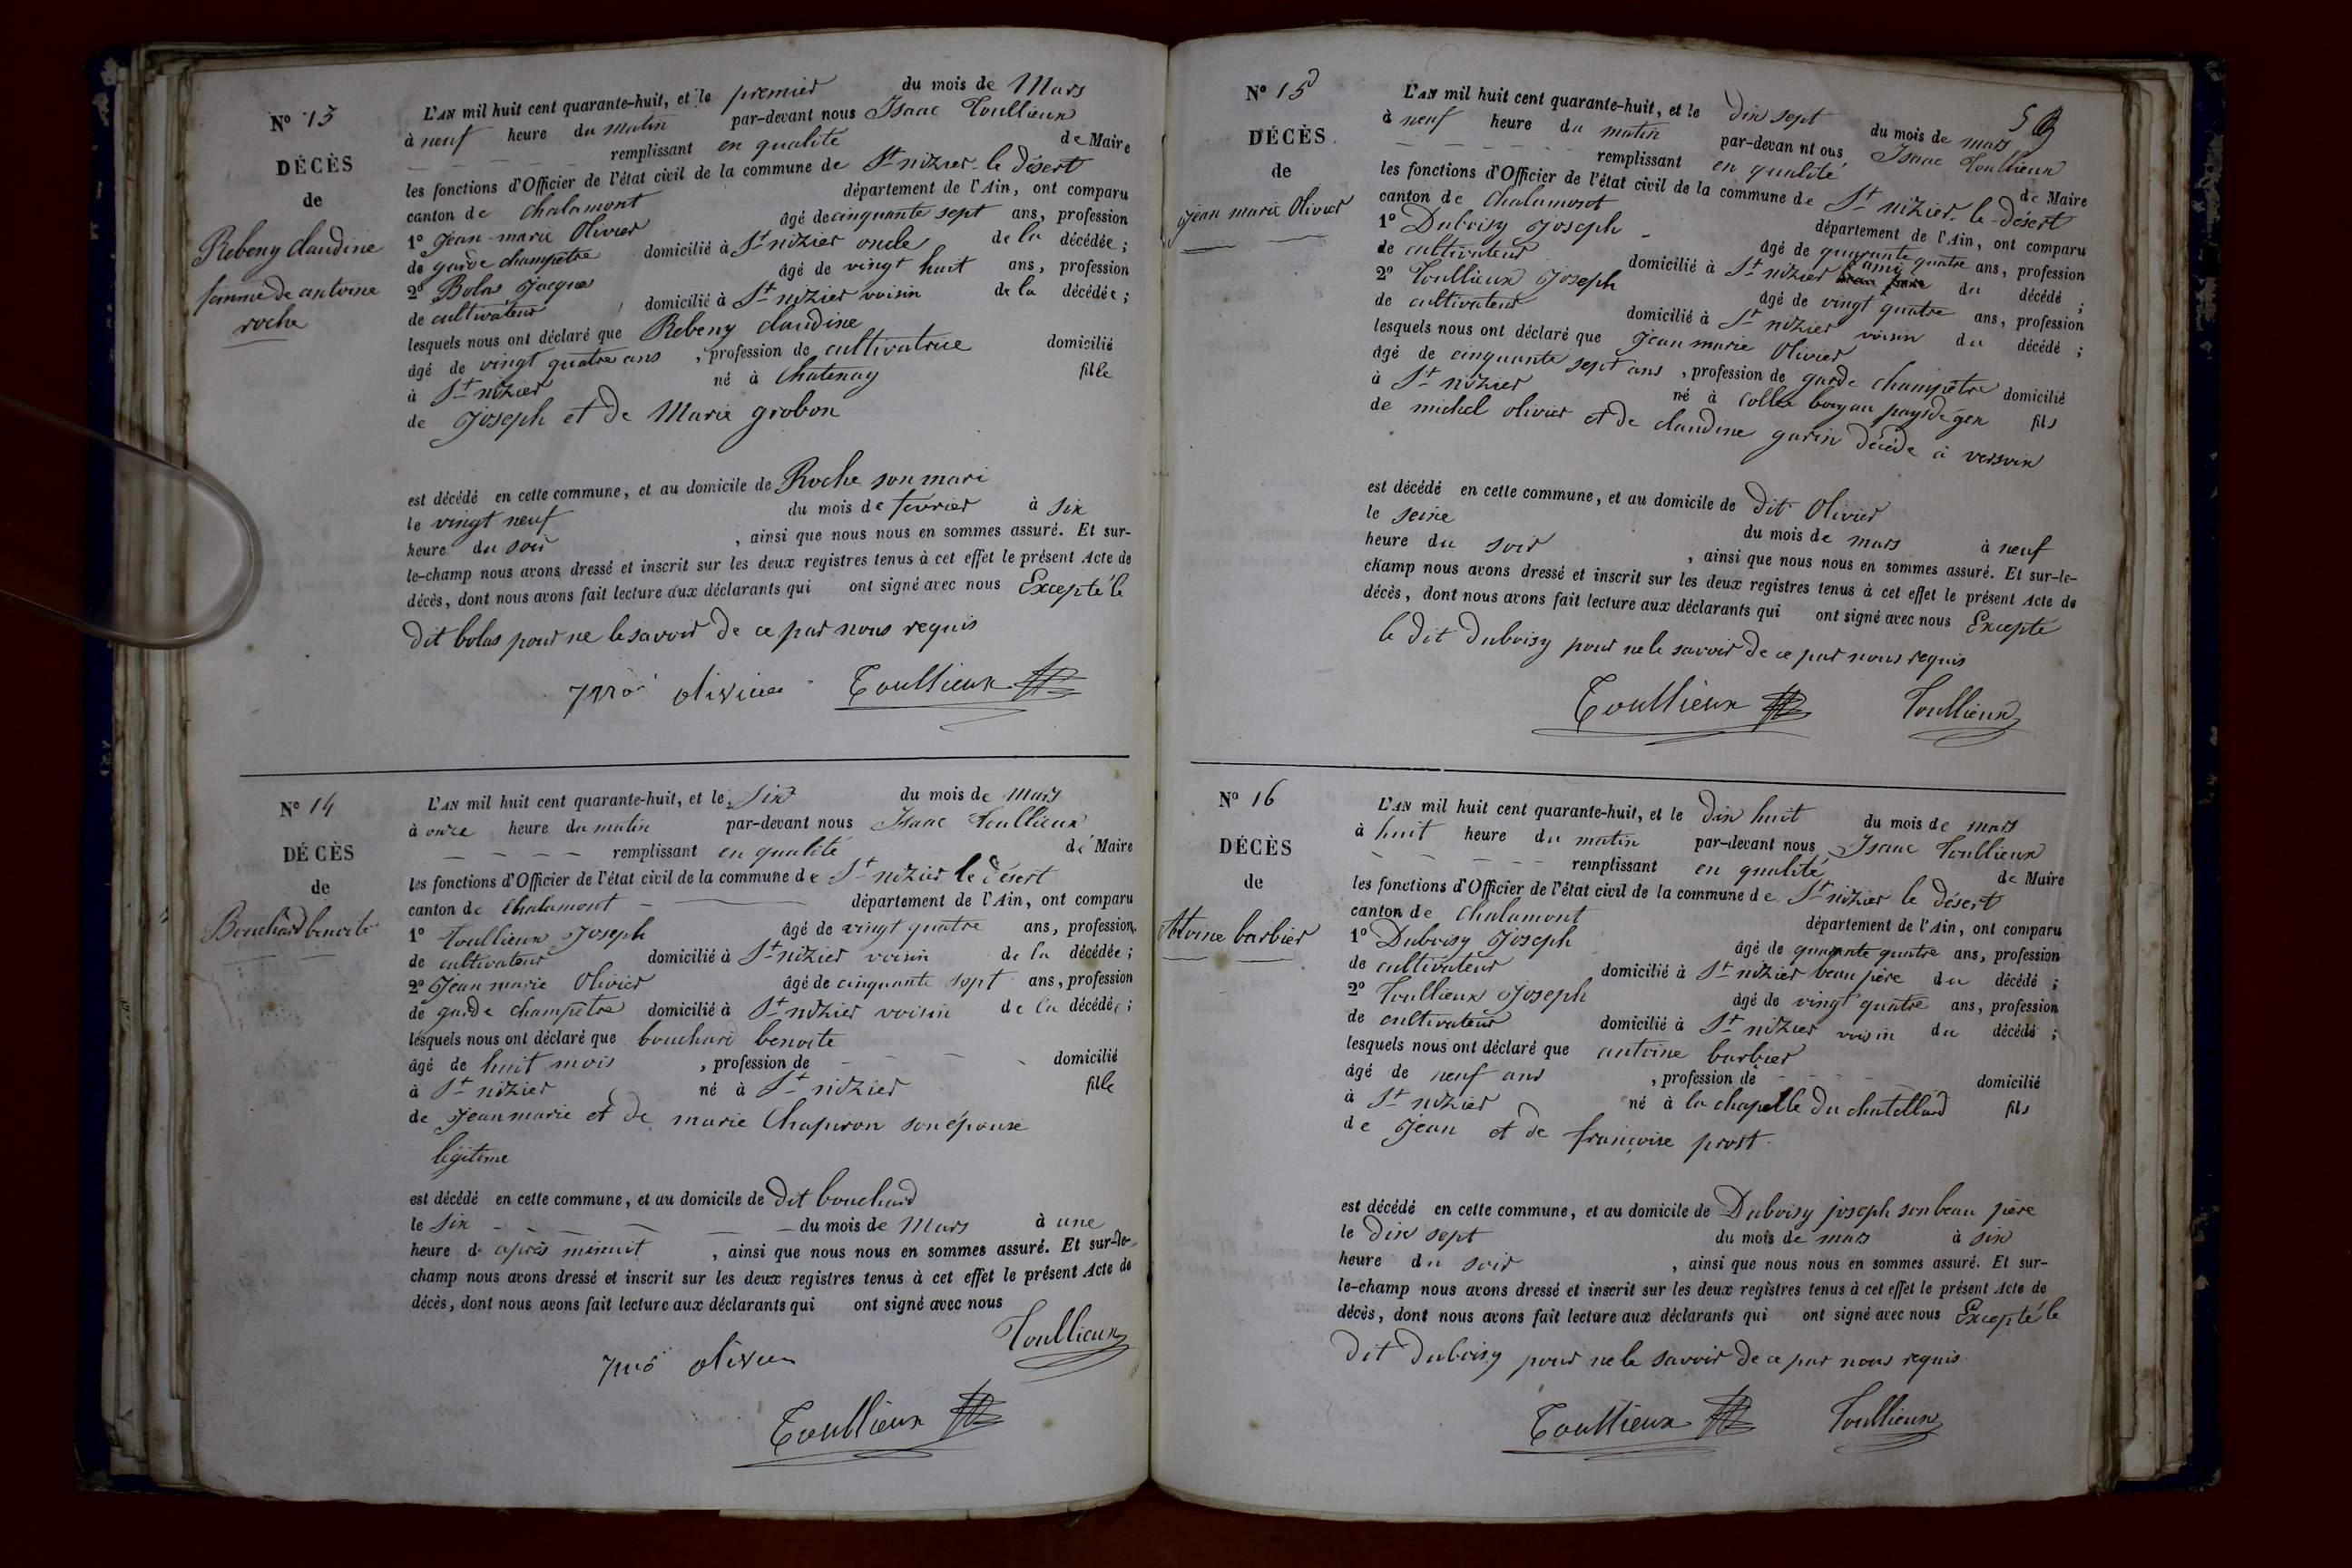 N° 13
DÉCÈS
de
Rebeny claudine
femme de antoine
roche
L'AN mil huit cent quarante-huit, et le premier du mois de Mars
à neuf heure du matin par-devant nous Isaac Toullieux
remplissant en qualité de Maire
les fonctions d'Officier de l'état civil de la commune de St nizier le désert
canton de chalamont département de l'Ain, ont comparu
1° Jean-marie Olivier âgé de cinquante sept ans, profession
de garde champetre domicilié à St nizier oncle de la décédée;
2° Bolas Jacques âgé de vingt huit ans, profession
de cultivateur, domicilié à St nizier voisin de la décédée;
lesquels nous ont déclaré que Rebeny claudine
âgé de vingt quatre ans, profession de cultivatrice domicilié
à St nizier né à Chatenay fille
de Joseph et de Marie grobon
est décédé en cette commune, et au domicile de Roche son mari
le vingt neuf du mois de fevrier à six
heure du soir, ainsi que nous nous en sommes assuré. Et sur-
le-champ nous avons dressé et inscrit sur les deux registres tenus à cet effet le présent Acte de
décès, dont nous avons fait lecture aux déclarants qui ont signé avec nous Excepté le
dit bolas pour ne le savoir de ce par nous requis
olivier Toullieux
N° 14
DÉCÈS
de
Bouchard benoite
L'AN mil huit cent quarante-huit, et le Six du mois de mars
à onze heure du matin par-devant nous Isaac Toullieux
remplissant en qualité de Maire
les fonctions d'Officier de l'état civil de la commune de St nizier le désert
canton de Chalamont département de l'Ain, ont comparu
1° Toullieux Joseph âgé de vingt quatre ans, profession
de cultivateur domicilié à St nizier voisin de la décédée;
2° Jean marie Olivier âgé de cinquante sept ans, profession
de garde champetre domicilié à St nizier voisin de la décédée;
lesquels nous ont déclaré que bouchard benoite
âgé de huit mois, profession de domicilié
à St nizier né à St nizier fille
de Jean marie et de marie Chapiron son épouse
légitime
est décédé en cette commune, et au domicile de dit bouchard
le Six du mois de Mars à une
heure d après minuit, ainsi que nous nous en sommes assuré. Et sur-le-
champ nous avons dressé et inscrit sur les deux registres tenus à cet effet le présent Acte de
décès, dont nous avons fait lecture aux déclarants qui ont signé avec nous
Toullieux
olivier
Toullieux
N° 15
DÉCÈS
de
jean marie Olivier
L'AN mil huit cent quarante-huit, et le dix sept du mois de mars
à neuf heure du matin par-devan nt ous Isaac Toullieux
remplissant en qualité de Maire
les fonctions d'Officier de l'état civil de la commune de St nizier le désert
canton de Chalamont département de l'Ain, ont comparu
1° Duboisy Joseph âgé de quarante quatre ans, profession
de cultivateur domicilié à St nizier l'ami du décédé;
2° Toullieux Joseph âgé de vingt quatre ans, profession
de cultivateur domicilié à St nizier voisin du décédé;
lesquels nous ont déclaré que Jean marie Olivier
âgé de cinquante sept ans, profession de garde champêtre domicilié
à St nizier né à pays de gex fils
de michel olivier et de claudine garin décédé à versoix
est décédé en cette commune, et au domicile de dit Olivier
le seize du mois de mars à neuf
heure du soir, ainsi que nous nous en sommes assuré. Et sur-le-
champ nous avons dressé et inscrit sur les deux registres tenus à cet effet le présent Acte de
décès, dont nous avons fait lecture aux déclarants qui ont signé avec nous Excepté
le dit Duboisy pour ne le savoir de ce par nous requis
Toullieux Toullieux
N° 16
DÉCÈS
de
Atoine barbier
L'AN mil huit cent quarante-huit, et le dix huit du mois de mars
à huit heure du matin par-devant nous Isaac Toullieux
remplissant en qualité de Maire
les fonctions d'Officier de l'état civil de la commune de St nizier le désert
canton de Chalamont département de l'Ain, ont comparu
1° Duboisy Joseph âgé de quarante quatre ans, profession
de cultivateur domicilié à St nizier beau père du décédé;
2° Toullieux Joseph âgé de vingt quatre ans, profession
de cultivateur domicilié à St nizier voisin du décédé;
lesquels nous ont déclaré que antoine barbier
âgé de neuf ans, profession de domicilié
à St nizier né à la chapelle du chatellard fils
de Jean et de françoise prost.
est décédé en cette commune, et au domicile de Duboisy joseph son beau père
le dix sept du mois de mars à six
heure du soir, ainsi que nous nous en sommes assuré. Et sur-
le-champ nous avons dressé et inscrit sur les deux registres tenus à cet effet le présent Acte de
décès, dont nous avons fait lecture aux déclarants qui ont signé avec nous Excepté le
dit Duboisy pour ne le savoir de ce par nous requis
Toullieux Toullieux